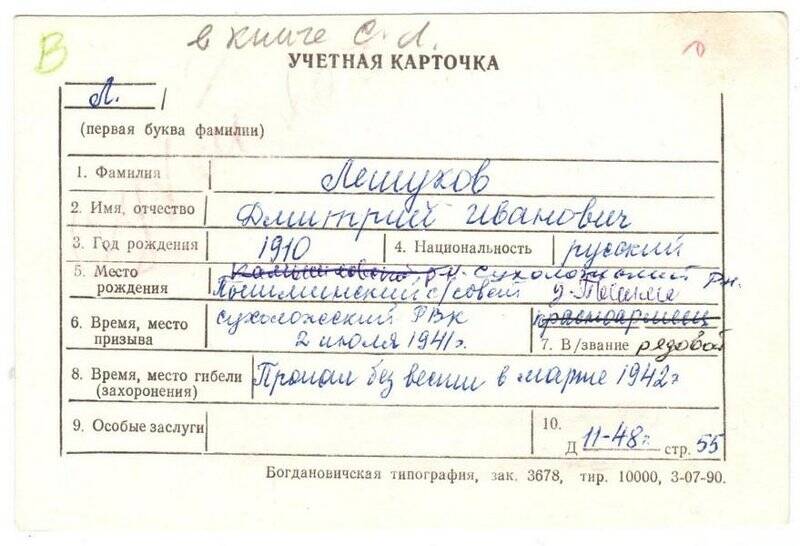 В
в книге С. Л.
УЧЕТНАЯ КАРТОЧКА
Л.
(первая буква фамилии)
1. Фамилия Лешуков
2. Имя, отчество Дмитрий Иванович
3. Год рождения 1910 4. Национальность русский
5. Место рождения р-н. Сухоложский р-н.
Пышминский с/совет
6. Время, место призыва сухоложский РВК
2 июля 1941г. красноармеец
7. В/звание рядовой
8. Время, место гибели (захоронения) Пропал без вести в марте 1942г
9. Особые заслуги
10. Д 11-48г. стр. 55
Богдановичская типография, зак. 3678, тир. 10000, 3-07-90.